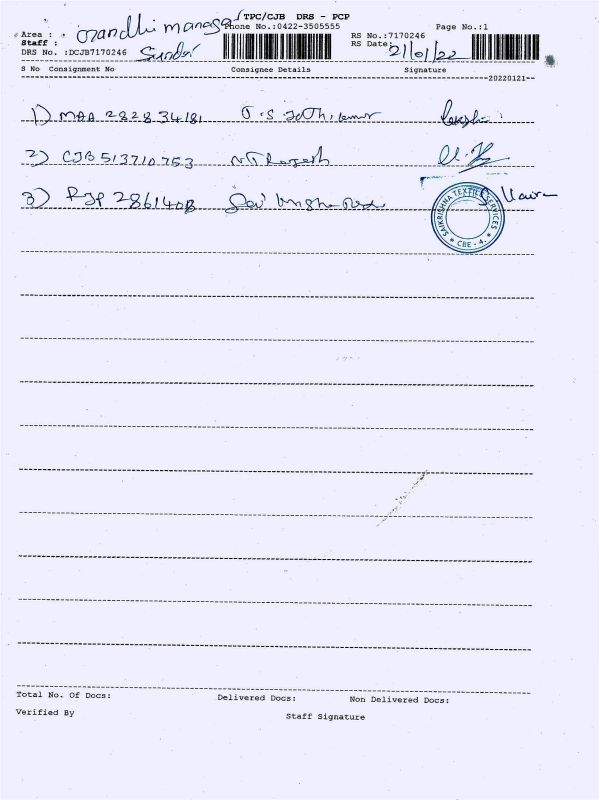 TPC/CJB DRS - PCP
Area : Gandhi managar Phone No.:0422-3505555 Page No.:1
Staff : Sundar RS No.:7170246
DRS No. :DCJB7170246 RS Date: 21/01/22
S No Consignment No Consignee Details Signature
20220121
1) MAA 282834181
2) CJB 513710753 Rajesh
3) RJP 2861408
SAIKRISHNA TEXTILE SERVICES
* CBE - 4. *
Total No. Of Docs: Delivered Docs: Non Delivered Docs:
Verified By Staff Signature